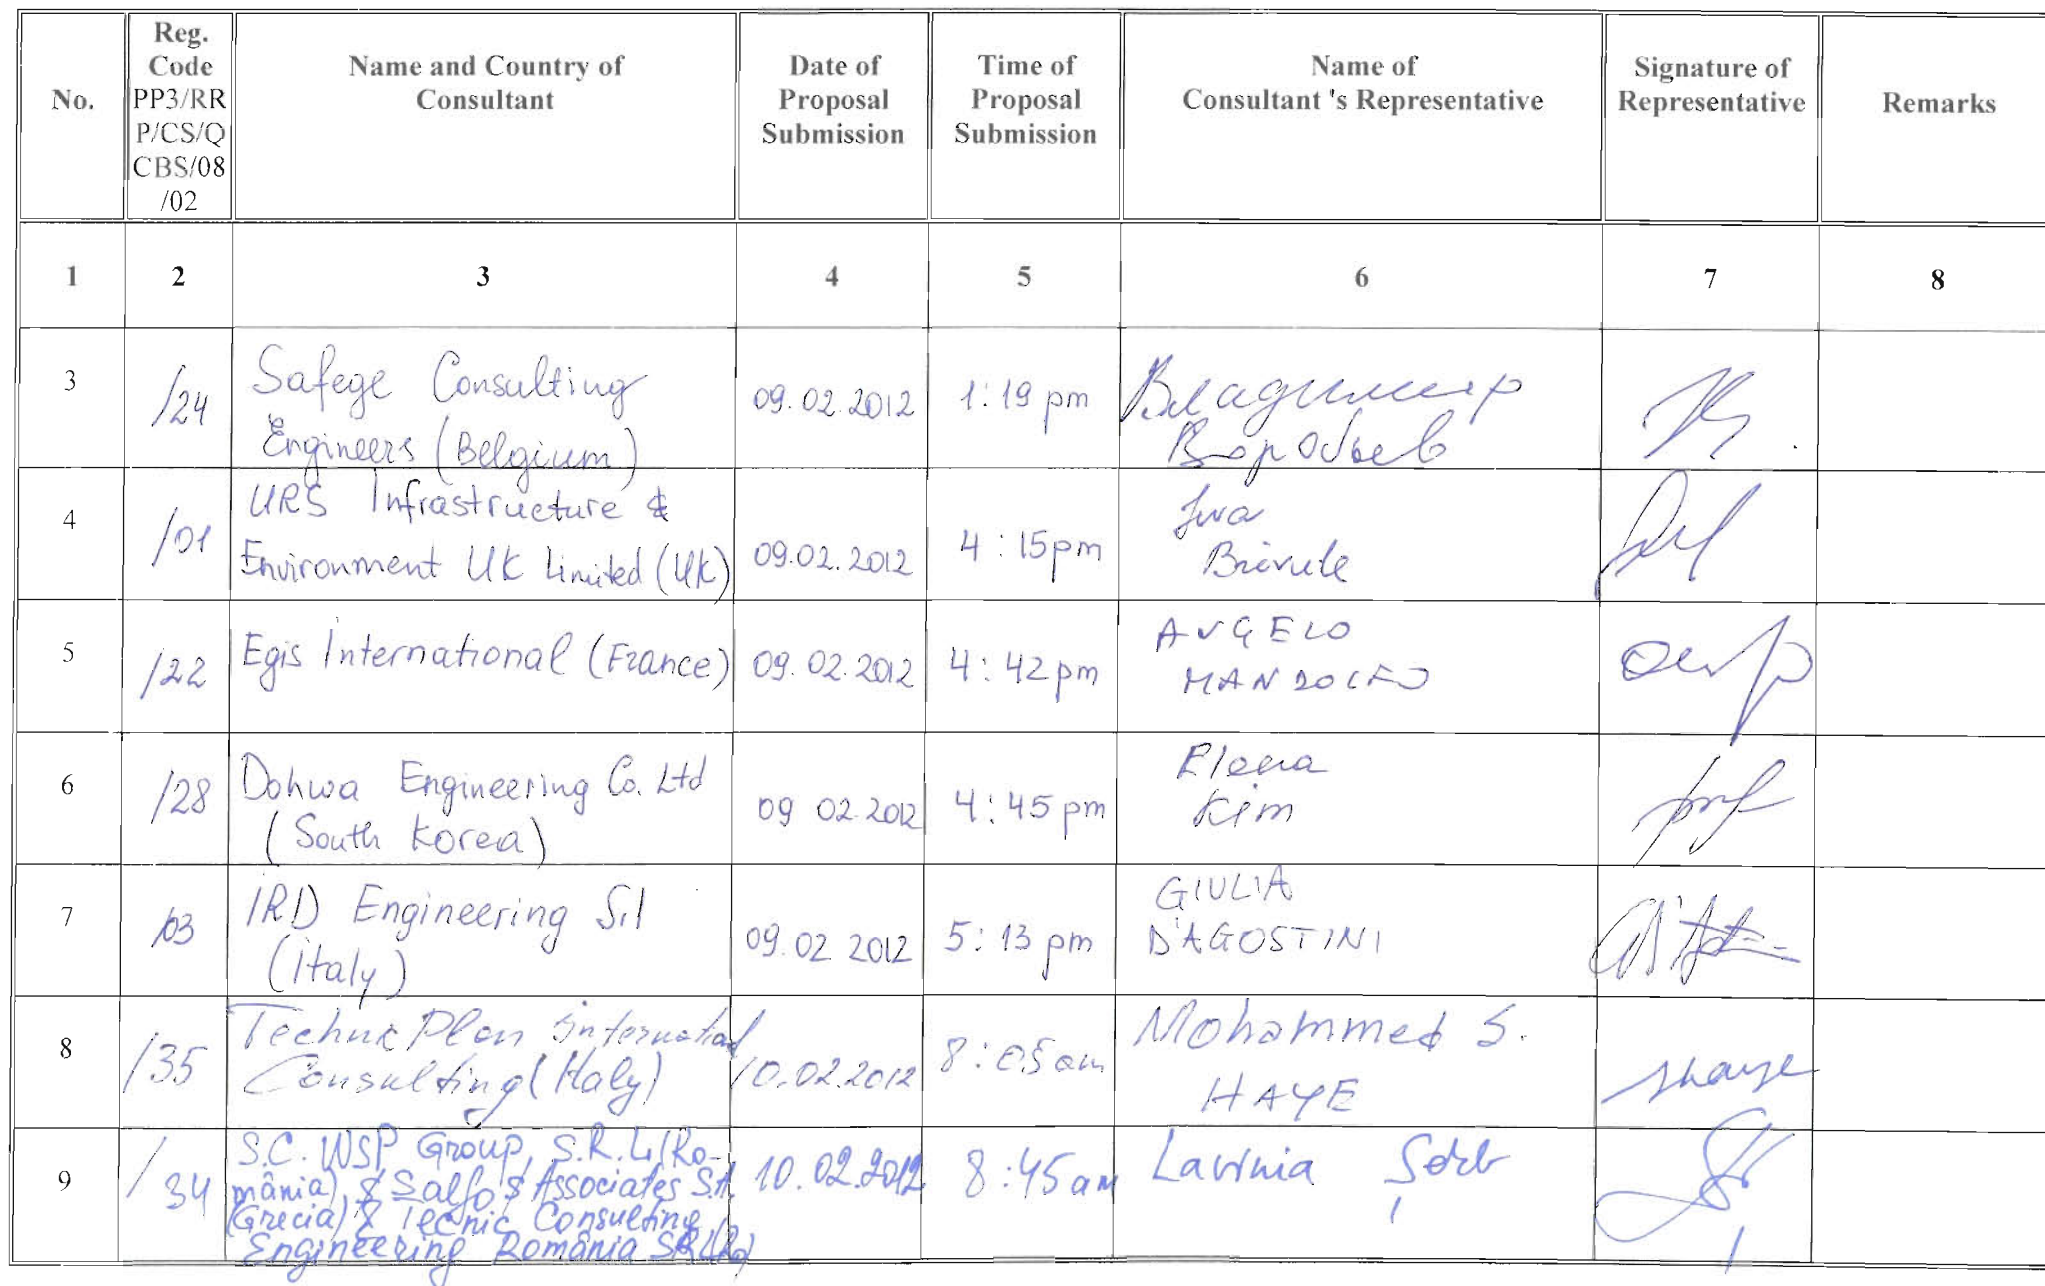 No.
Reg.
Code
PP3/RR
P/CS/Q
CBS/08
/02
Name and Country of
Consultant
Date of
Proposal
Submission
Time of
Proposal
Submission
Name of
Consultant 's Representative
Signature of
Representative
Remarks
1 2 3 4 5 6 7 8
3
/24
Safege Consulting
Engineers (Belgium)
09.02.2012
1:19 pm
Владимир
Воробьев
4
/01
URS Infrastructure &
Environment UK Limited (UK)
09.02.2012
4:15pm
Brivule
5
/22
Egis International (France)
09.02.2012
4:42pm
ANGELO
6
/28
Dohwa Engineering Co. Ltd
(South Korea)
09 02.2012
4:45pm
Elena
Kim
7
/03
IRD Engineering Srl
(Italy)
09.02 2012
5:13 pm
GIULIA
D'AGOSTINI
8
/35
Technic Plan International
Consulting (Italy)
10.02.2012
8:05am
Mohammed S.
HAYE
9
/34
S.C. WSP Group, S.R.L (Ro-
mânia), & Salfo & Associates S.A.
(Grecia) & Tecnic Consulting
Engineering România SRL (Ro)
10.02.2012
8:45am
Lavinia